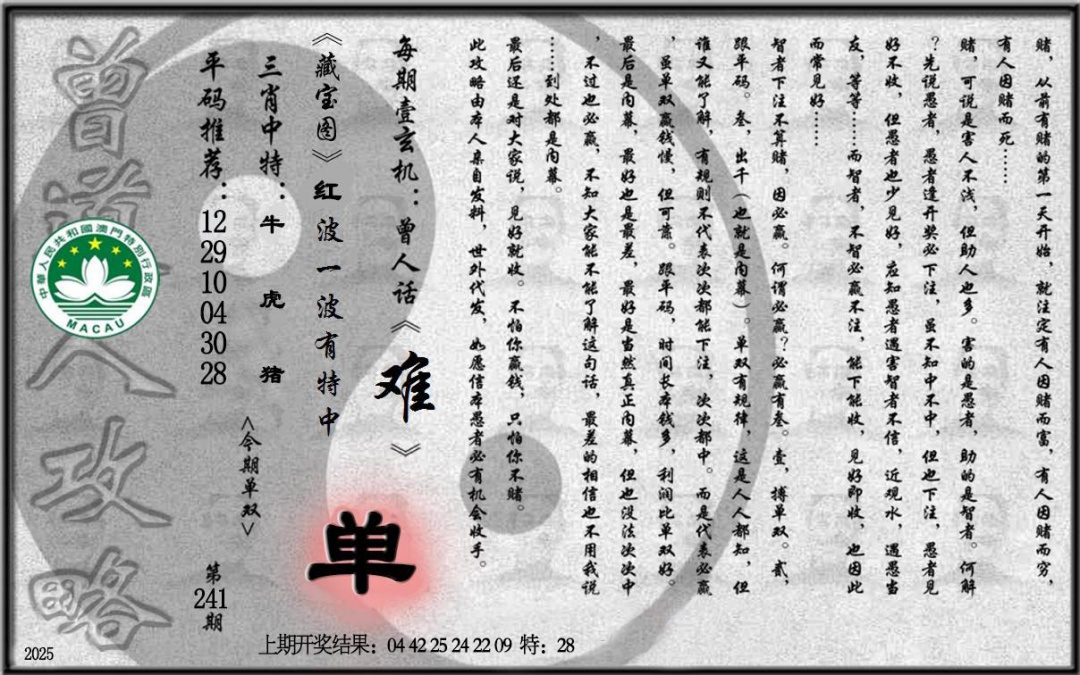 赌，从前有赌的第一天开始，就注定有人因赌而富，有人因赌而穷，
有人因赌而死……
赌，可说是害人不浅，但助人也多。害的是愚者，助的是智者。何解
？先说愚者，愚者逢开奖必下注，虽不知中不中，但也下注，愚者见
好不收，但愚者也少见好，应知愚者遇害智者不信，近观水，遇愚当
友，等等……而智者，不智必赢不注，能下能收，见好即收，也因此
而常见好……
智者下注不算赌，因必赢。何谓必赢？必赢有叁。壹，搏单双。贰，
跟平码。叁，出千（也就是内幕）。单双有规律，这是人人都知，但
谁又能了解，有规则不代表次次都能下注，次次都中。而是代表必赢
，虽单双赢钱慢，但可靠。跟平码，时间长本钱多，利润比单双好。
最后是内幕，最好也是最差，最好是当然真正内幕，但也没法次次中
，不过也必赢，不知大家能不能了解这句话，最差的相信也不用我说
……到处都是内幕。
最后还是对大家说，见好就收。不怕你赢钱，只怕你不赌。
此攻略由本人亲自发料，世外代发，如愿信本愚者必有机会收手。
每期壹玄机：曾人话《难》
《藏宝图》红波一波有特中
三肖中特：牛 虎 猪
平码推荐：12 29 10 04 30 28
<今期单双>
单
第241期
曾道人攻略
中華人民共和國澳門特別行政區
MACAU
上期开奖结果：04 42 25 24 22 09 特：28
2025